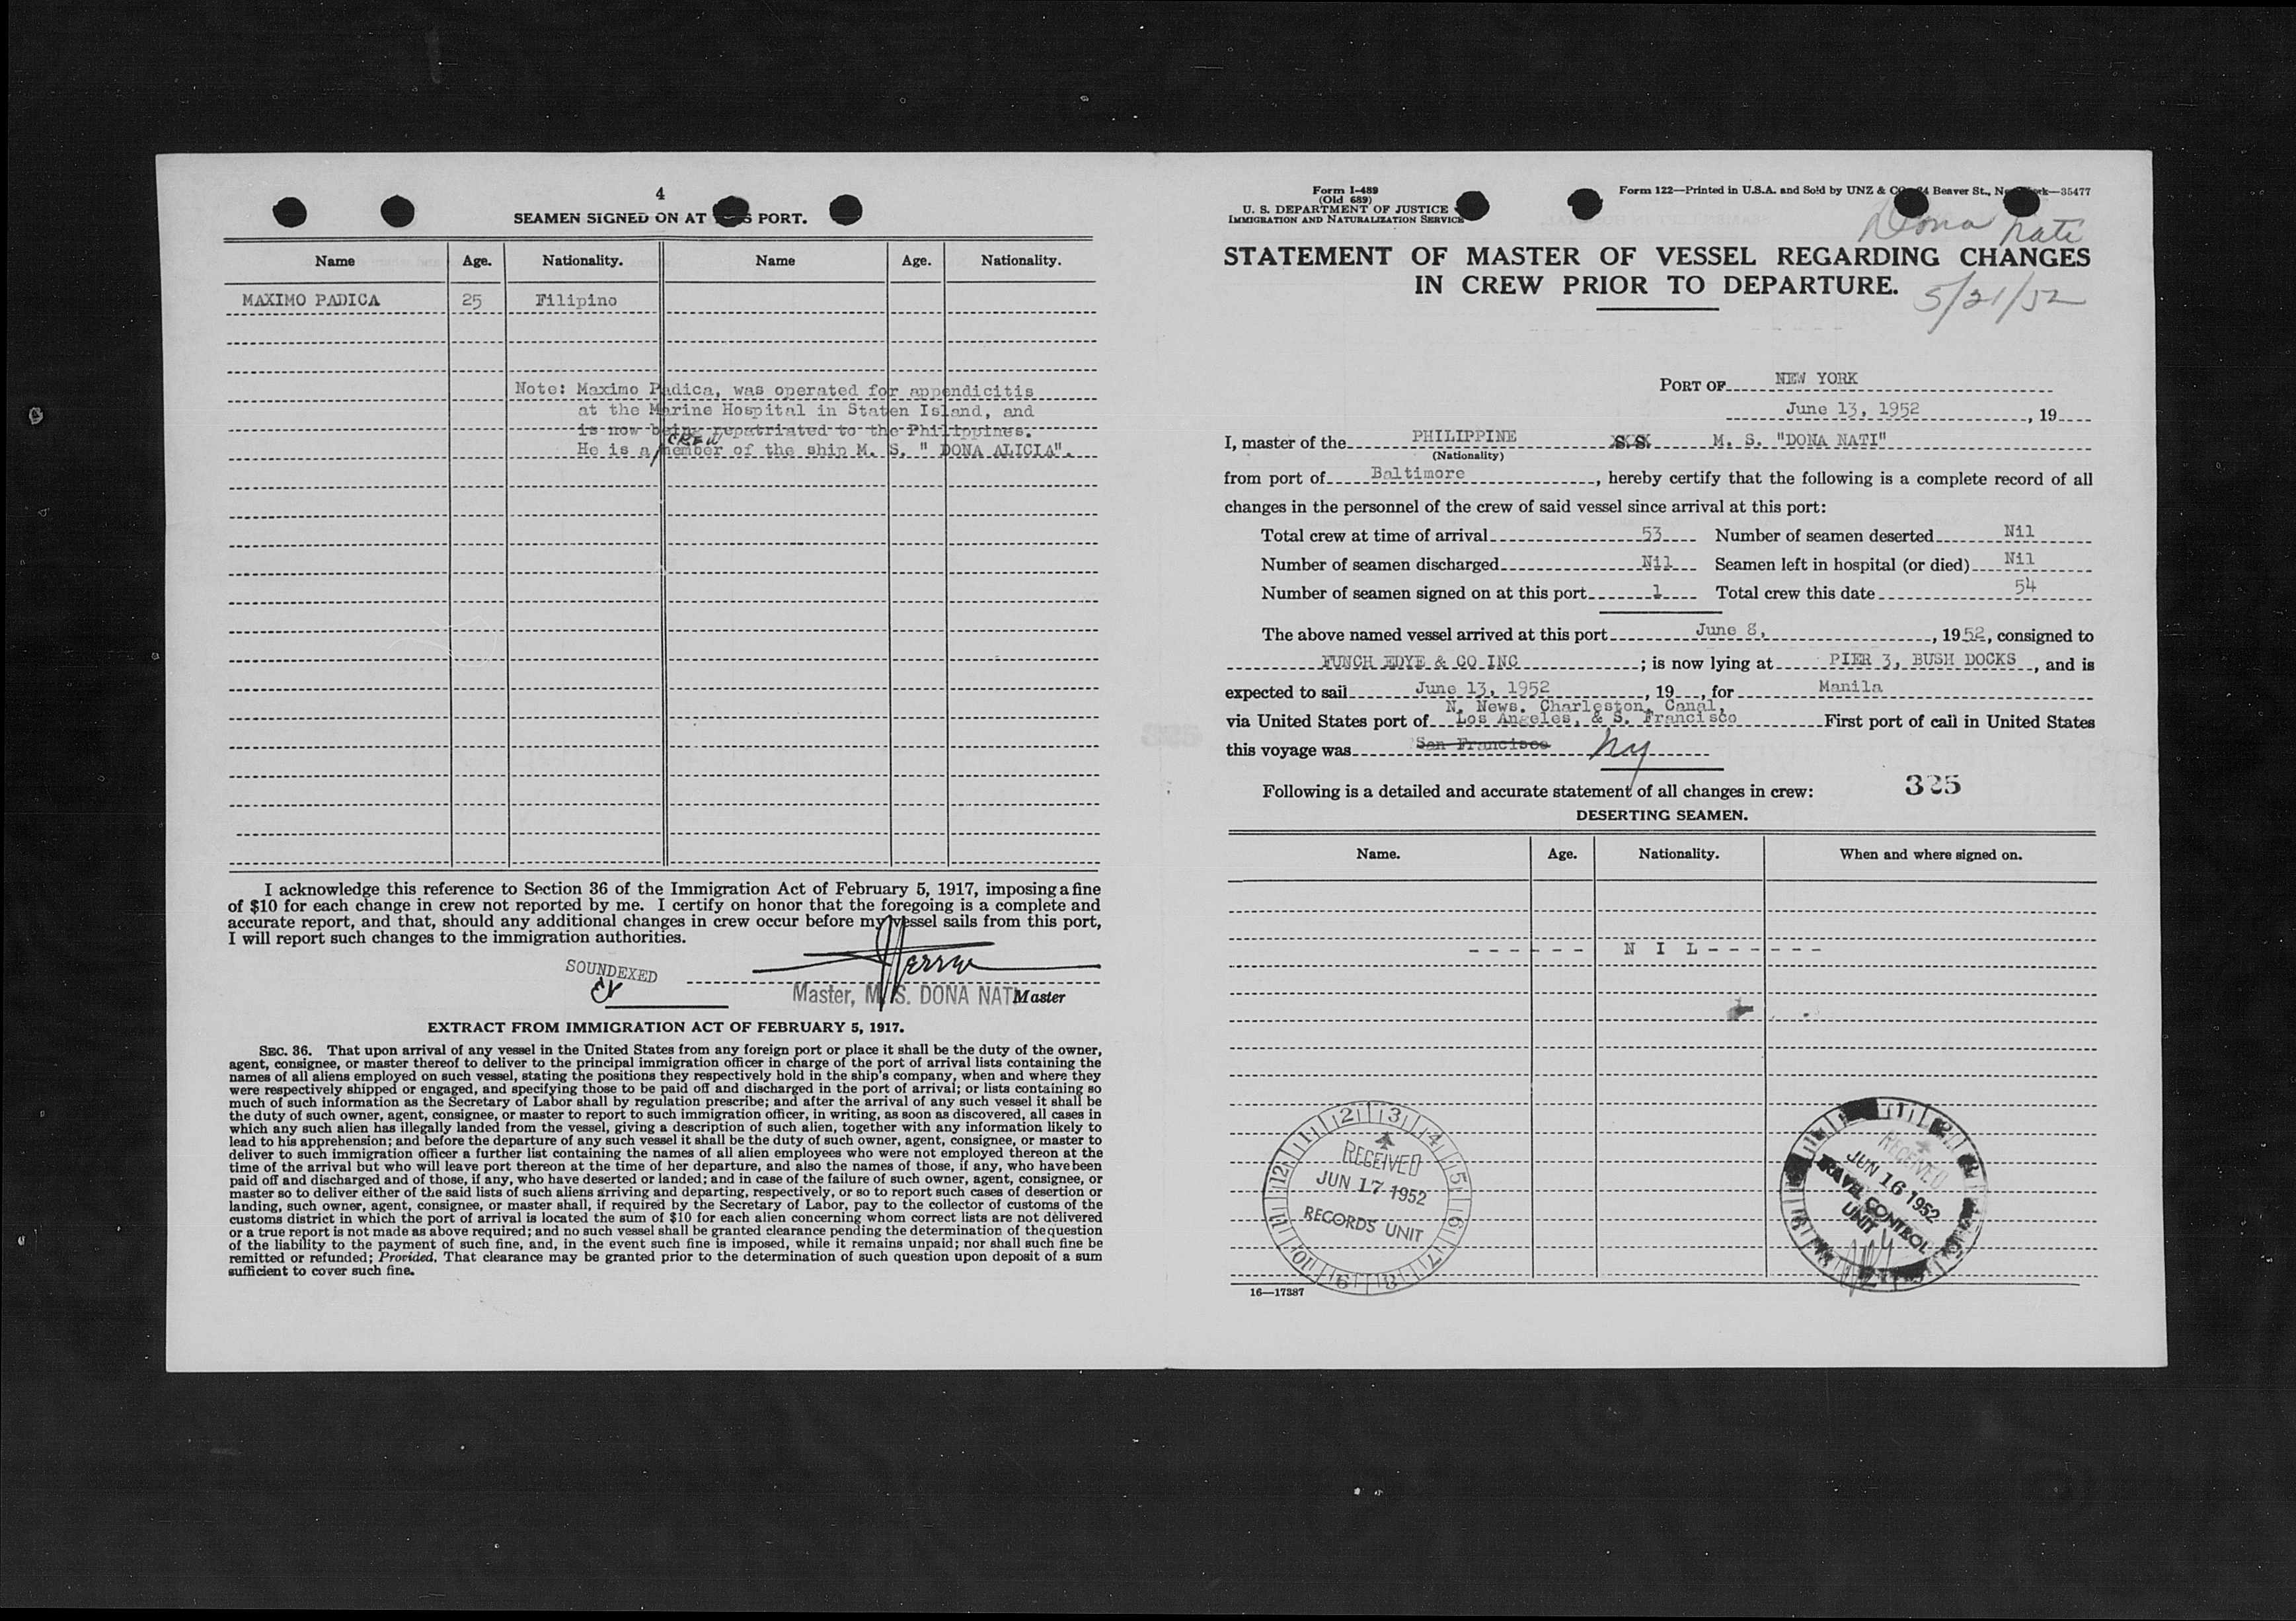 4
SEAMEN SIGNED ON AT THIS PORT.
Name Age. Nationality. Name Age. Nationality.
MAXIMO PADICA 25 Filipino
Note: Maximo Padica, was operated for appendicitis
at the Marine Hospital in Staten Island, and
is now being repatriated to the Philippines.
CREW
He is a member of the ship M. S. " DONA ALICIA".
I acknowledge this reference to Section 36 of the Immigration Act of February 5, 1917, imposing a fine
of $10 for each change in crew not reported by me. I certify on honor that the foregoing is a complete and
accurate report, and that, should any additional changes in crew occur before my vessel sails from this port,
I will report such changes to the immigration authorities.
SOUNDEXED
Master, M/S. DONA NATI Master
EXTRACT FROM IMMIGRATION ACT OF FEBRUARY 5, 1917.
SEC. 36. That upon arrival of any vessel in the United States from any foreign port or place it shall be the duty of the owner,
agent, consignee, or master thereof to deliver to the principal immigration officer in charge of the port of arrival lists containing the
names of all aliens employed on such vessel, stating the positions they respectively hold in the ship's company, when and where they
were respectively shipped or engaged, and specifying those to be paid off and discharged in the port of arrival; or lists containing so
much of such information as the Secretary of Labor shall by regulation prescribe; and after the arrival of any such vessel it shall be
the duty of such owner, agent, consignee, or master to report to such immigration officer, in writing, as soon as discovered, all cases in
which any such alien has illegally landed from the vessel, giving a description of such alien, together with any information likely to
lead to his apprehension; and before the departure of any such vessel it shall be the duty of such owner, agent, consignee, or master to
deliver to such immigration officer a further list containing the names of all alien employees who were not employed thereon at the
time of the arrival but who will leave port thereon at the time of her departure, and also the names of those, if any, who have been
paid off and discharged and of those, if any, who have deserted or landed; and in case of the failure of such owner, agent, consignee, or
master so to deliver either of the said lists of such aliens arriving and departing, respectively, or so to report such cases of desertion or
landing, such owner, agent, consignee, or master shall, if required by the Secretary of Labor, pay to the collector of customs of the
customs district in which the port of arrival is located the sum of $10 for each alien concerning whom correct lists are not delivered
or a true report is not made as above required; and no such vessel shall be granted clearance pending the determination of the question
of the liability to the payment of such fine, and, in the event such fine is imposed, while it remains unpaid; nor shall such fine be
remitted or refunded; Provided, That clearance may be granted prior to the determination of such question upon deposit of a sum
sufficient to cover such fine.
Form I-489
(Old 689)
U. S. DEPARTMENT OF JUSTICE
IMMIGRATION AND NATURALIZATION SERVICE
Form 122—Printed in U.S.A. and Sold by UNZ & CO., 24 Beaver St., New York—35477
Dona Nati
STATEMENT OF MASTER OF VESSEL REGARDING CHANGES
IN CREW PRIOR TO DEPARTURE.
5/21/52
PORT OF NEW YORK
June 13, 1952, 19
I, master of the PHILIPPINE S.S. M. S. "DONA NATI"
(Nationality)
from port of Baltimore, hereby certify that the following is a complete record of all
changes in the personnel of the crew of said vessel since arrival at this port:
Total crew at time of arrival 53 Number of seamen deserted Nil
Number of seamen discharged Nil Seamen left in hospital (or died) Nil
Number of seamen signed on at this port 1 Total crew this date 54
The above named vessel arrived at this port June 8, , 1952, consigned to
FUNCH EDYE & CO INC ; is now lying at PIER 3, BUSH DOCKS, and is
expected to sail June 13, 1952, 19 , for Manila
N. News. Charleston, Canal,
via United States port of Los Angeles, & S. Francisco First port of call in United States
this voyage was San Francisco NY
Following is a detailed and accurate statement of all changes in crew: 325
DESERTING SEAMEN.
Name. Age. Nationality. When and where signed on.
- - - - - - N I L - - - - - -
RECEIVED
JUN 17 1952
RECORDS UNIT
RECEIVED
JUN 16 1952
TRAVEL CONTROL
UNIT
16—17387